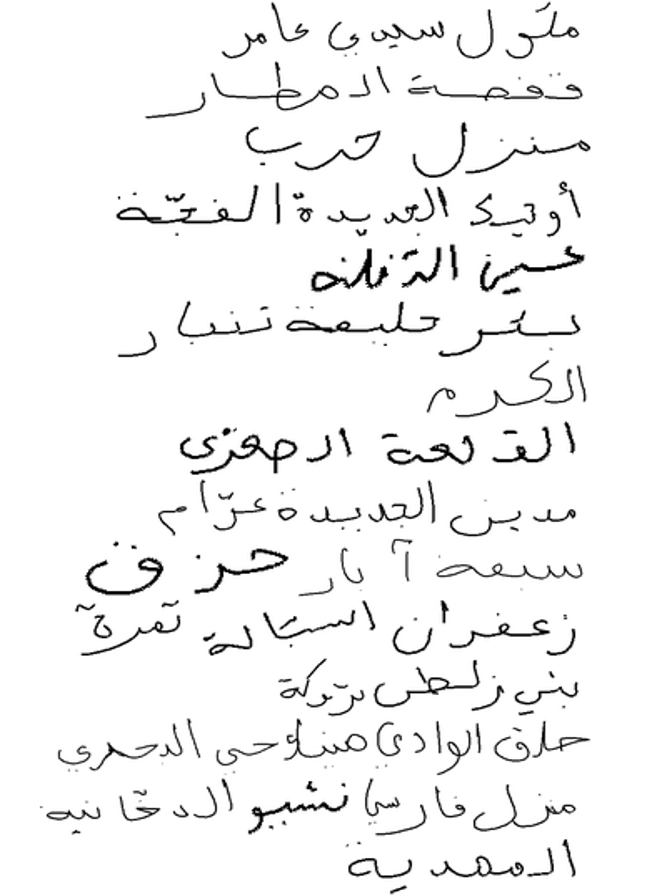 ملول سيدي عامر
قفصة المطار
منزل حرب
أوتيك الجديدة الفجّة
بئر خليفة تنبار
الكرم
القلعة الصغرى
مدين الجديدة عرّام
سبعة آبار حزق
زعفران
بني زلطن بتركة
حلق الوادي ميناء حي البحري
منزل فارسي نشيو الدخانية
المهدية